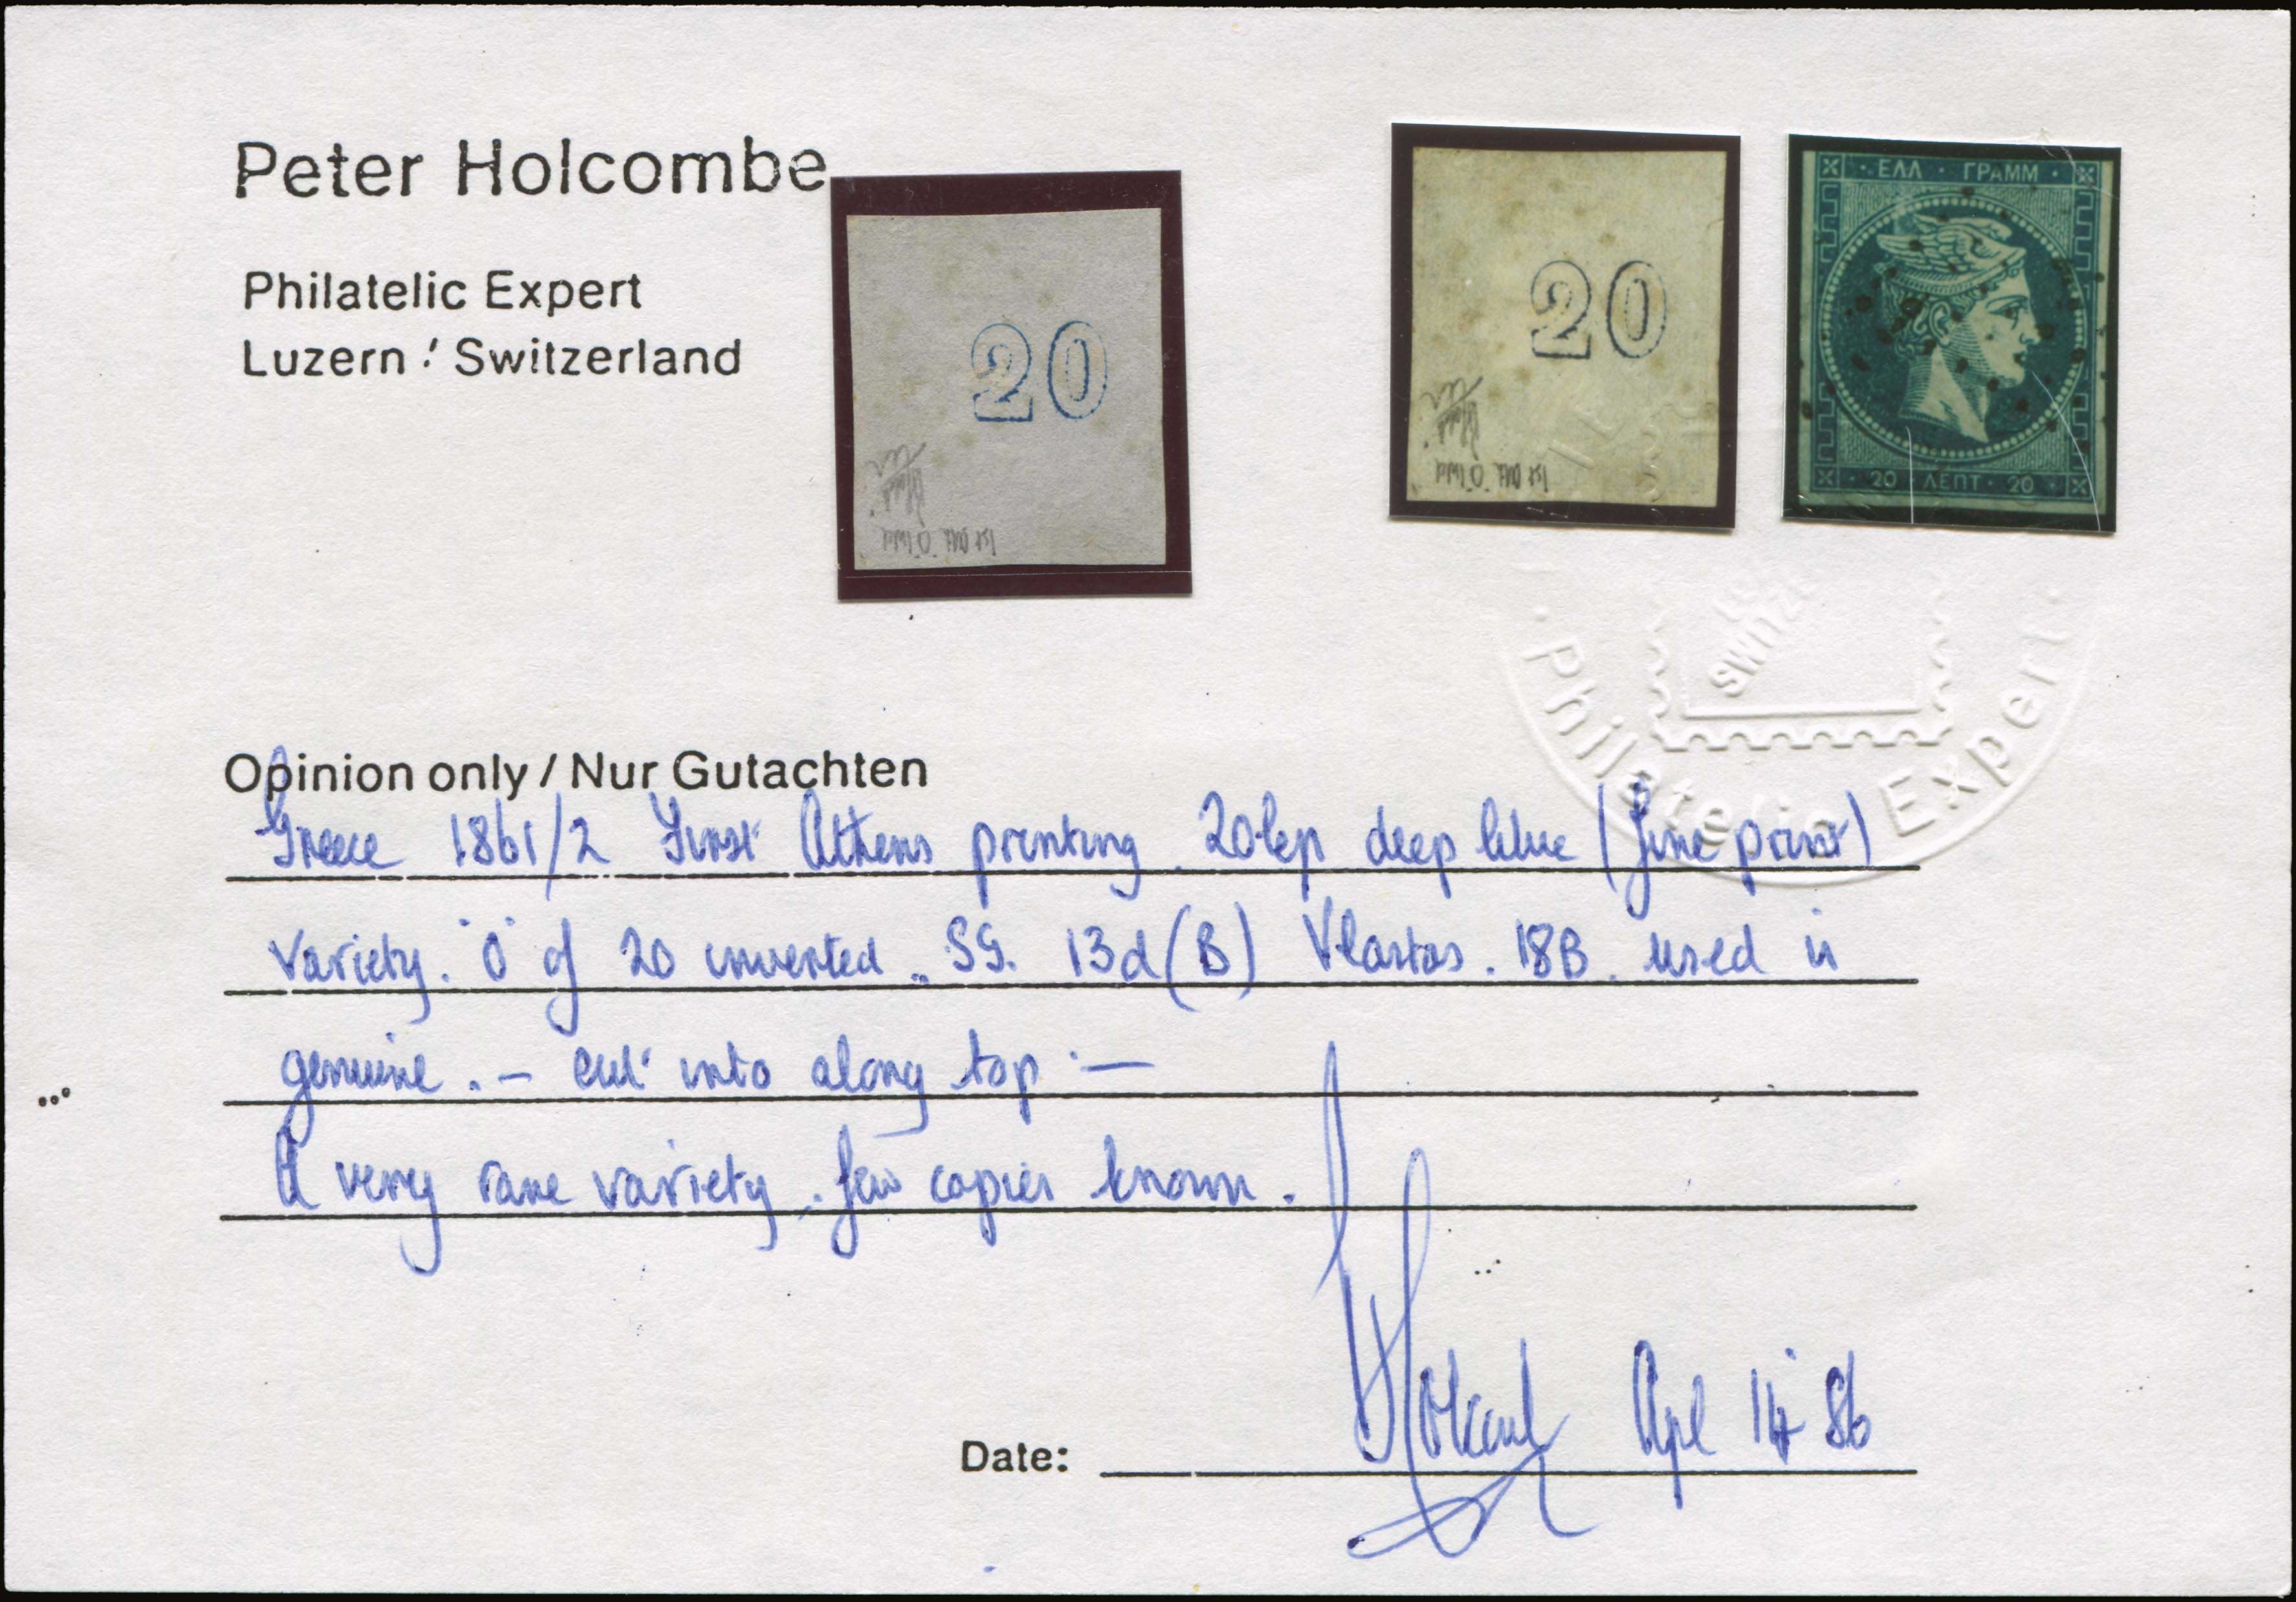 Peter Holcombe
Philatelic Expert
Luzern / Switzerland
20
20
ΕΛΛ · ΓΡΑΜΜ
20 ΛΕΠΤ · 20
1st Ath
'0' Inv
SWITZE
· Philatelic Expert ·
Opinion only / Nur Gutachten
Greece 1861/2 First Athens printing. 20lep deep blue (fine print)
Variety. "0" of 20 inverted.. SG. 13d (B) Vlastos. 18B. used is
genuine. - cut into along top. -
A very rare variety. few copies known.
Date: Apl 14 86